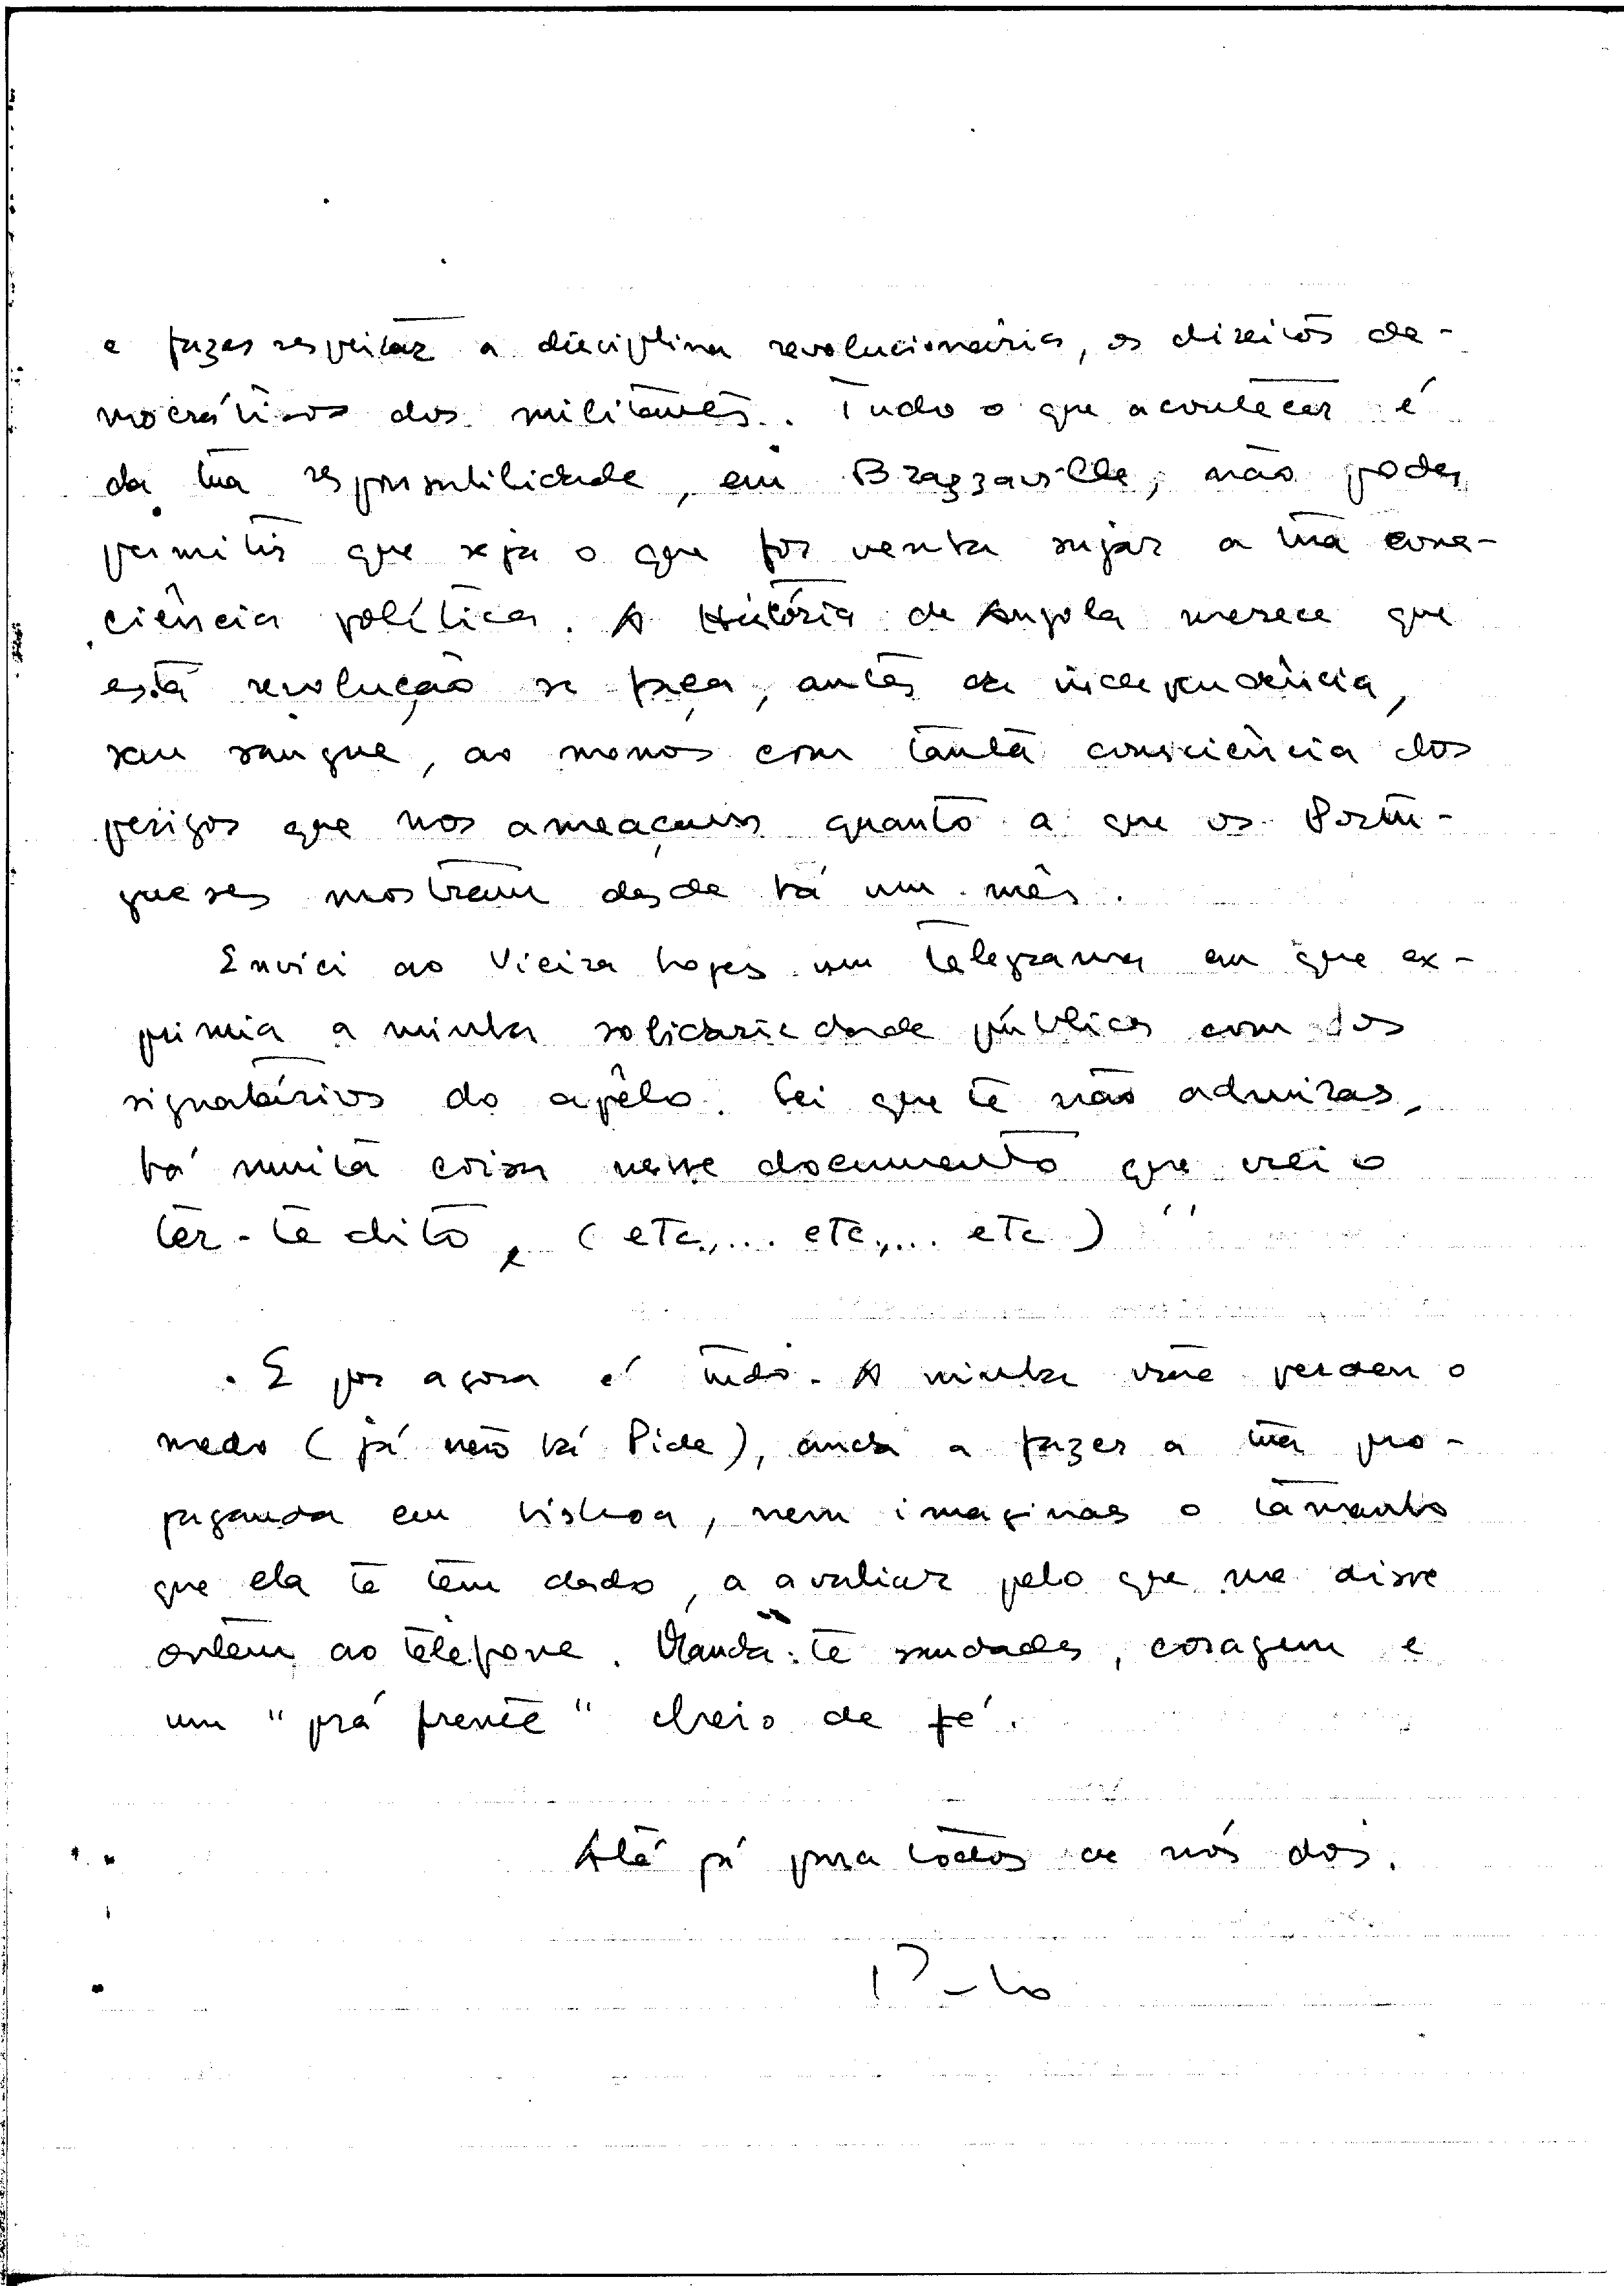 e fazer respeitar a disciplina revolucionária, os direitos de-
mocráticos dos militantes. Tudo o que acontecer é
da tua responsabilidade, em Brazzaville, não podes
permitir que seja o que for venha sujar a tua cons-
ciência política. A História de Angola merece que
esta revolução se faça, antes da independência,
sem sangue, ao menos com tanta consciência dos
perigos que nos ameaçam quanto a que os Portu-
gueses mostram desde há um mês.
Enviei ao Vieira Lopes um telegrama em que ex-
primia a minha solidariedade pública com os
signatários do apêlo. Sei que te não admiras,
há muita coisa nesse documento que creio
ter-te dito, (etc,... etc,... etc) "
. E por agora é tudo. A minha mãe perdeu o
medo (já não há Pide), anda a fazer a tua pro-
paganda em Lisboa, nem imaginas o tamanho
que ela te tem dado, a avaliar pelo que me disse
ontem ao telefone. Manda-te saudades, coragem e
um "prá frente" cheio de fé.
Até já para todos de nós dois.